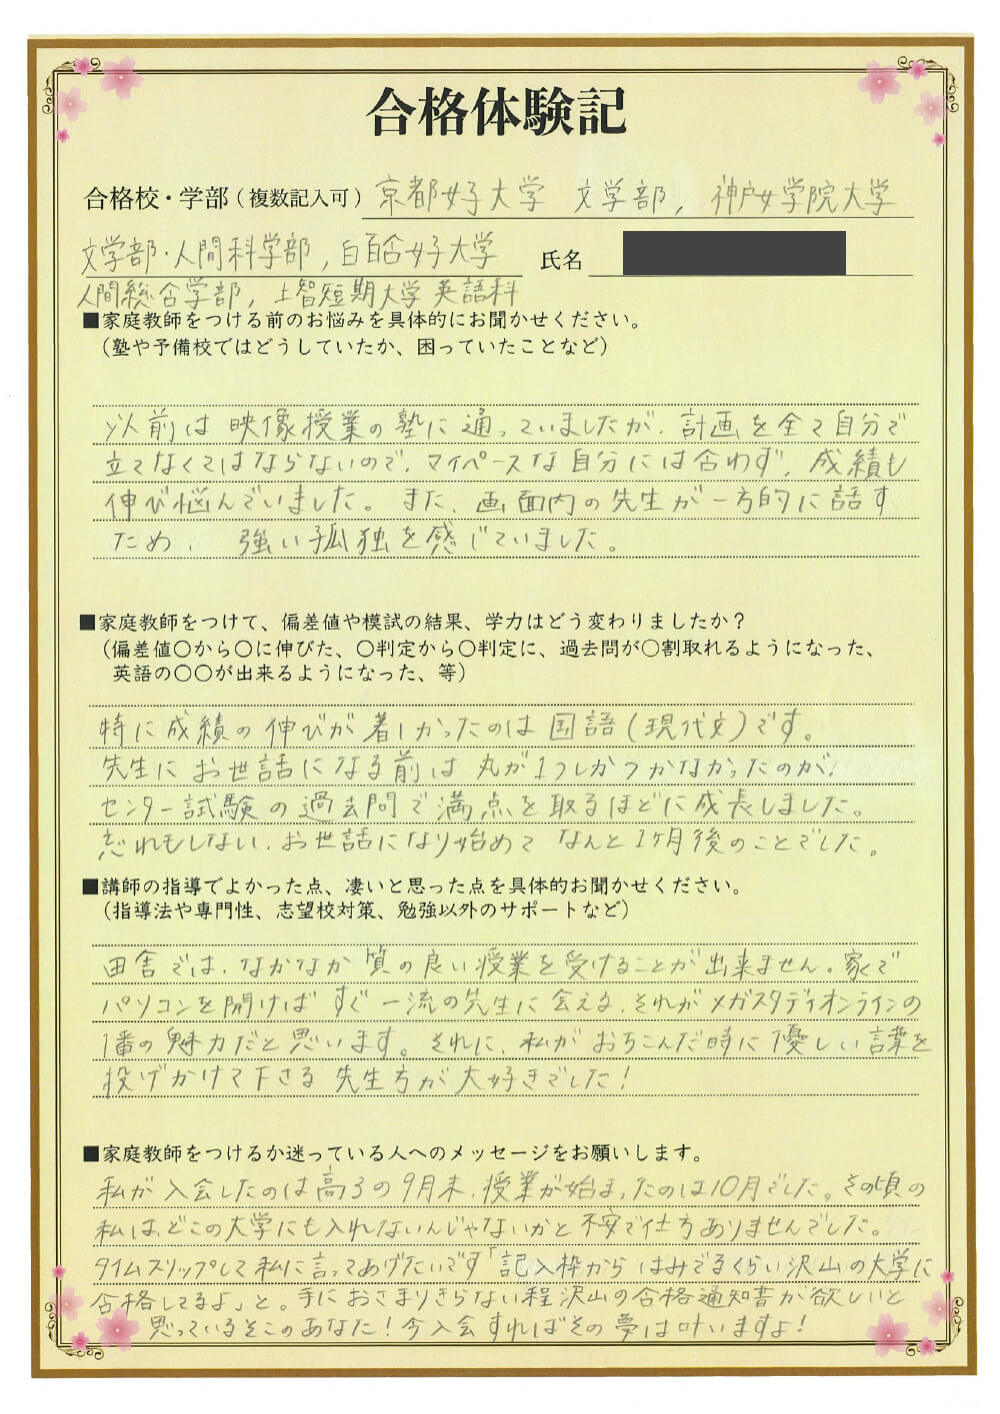 合格体験記
合格校・学部（複数記入可） 京都女子大学 文学部, 神戸女学院大学
文学部・人間科学部, 白百合女子大学 氏名
人間総合学部, 上智短期大学 英語科
■家庭教師をつける前のお悩みを具体的にお聞かせください。
（塾や予備校ではどうしていたか、困っていたことなど）
以前は映像授業の塾に通っていましたが、計画を全て自分で
立てなくてはならないので、マイペースな自分には合わず、成績も
伸び悩んでいました。また、画面内の先生が一方的に話す
ため、強い孤独を感じていました。
■家庭教師をつけて、偏差値や模試の結果、学力はどう変わりましたか？
（偏差値〇から〇に伸びた、〇判定から〇判定に、過去問が〇割取れるようになった、
英語の〇〇が出来るようになった、等）
特に成績の伸びが著しかったのは国語(現代文)です。
先生にお世話になる前は丸が1つしかつかなかったのが!
センター試験の過去問で満点を取るほどに成長しました。
忘れもしない、お世話になり始めてなんと1ヶ月後のことでした。
■講師の指導でよかった点、凄いと思った点を具体的お聞かせください。
（指導法や専門性、志望校対策、勉強以外のサポートなど）
田舎では、なかなか質の良い授業を受けることが出来ません。家で
パソコンを開けばすぐ一流の先生に会える、それがメガスタディオンラインの
1番の魅力だと思います。それに、私がおちこんだ時に優しい言葉を
投げかけて下さる先生方が大好きでした!
■家庭教師をつけるか迷っている人へのメッセージをお願いします。
私が入会したのは高3の9月末、授業が始まったのは10月でした。その頃の
私は、どこの大学にも入れないんじゃないかと不安で仕方ありませんでした。
タイムスリップして私に言ってあげたいです「記入枠からはみでるくらい沢山の大学に
合格してるよ」と。手におさまりきらない程沢山の合格通知書が欲しいと
思っているそこのあなた!今入会すればその夢は叶いますよ!